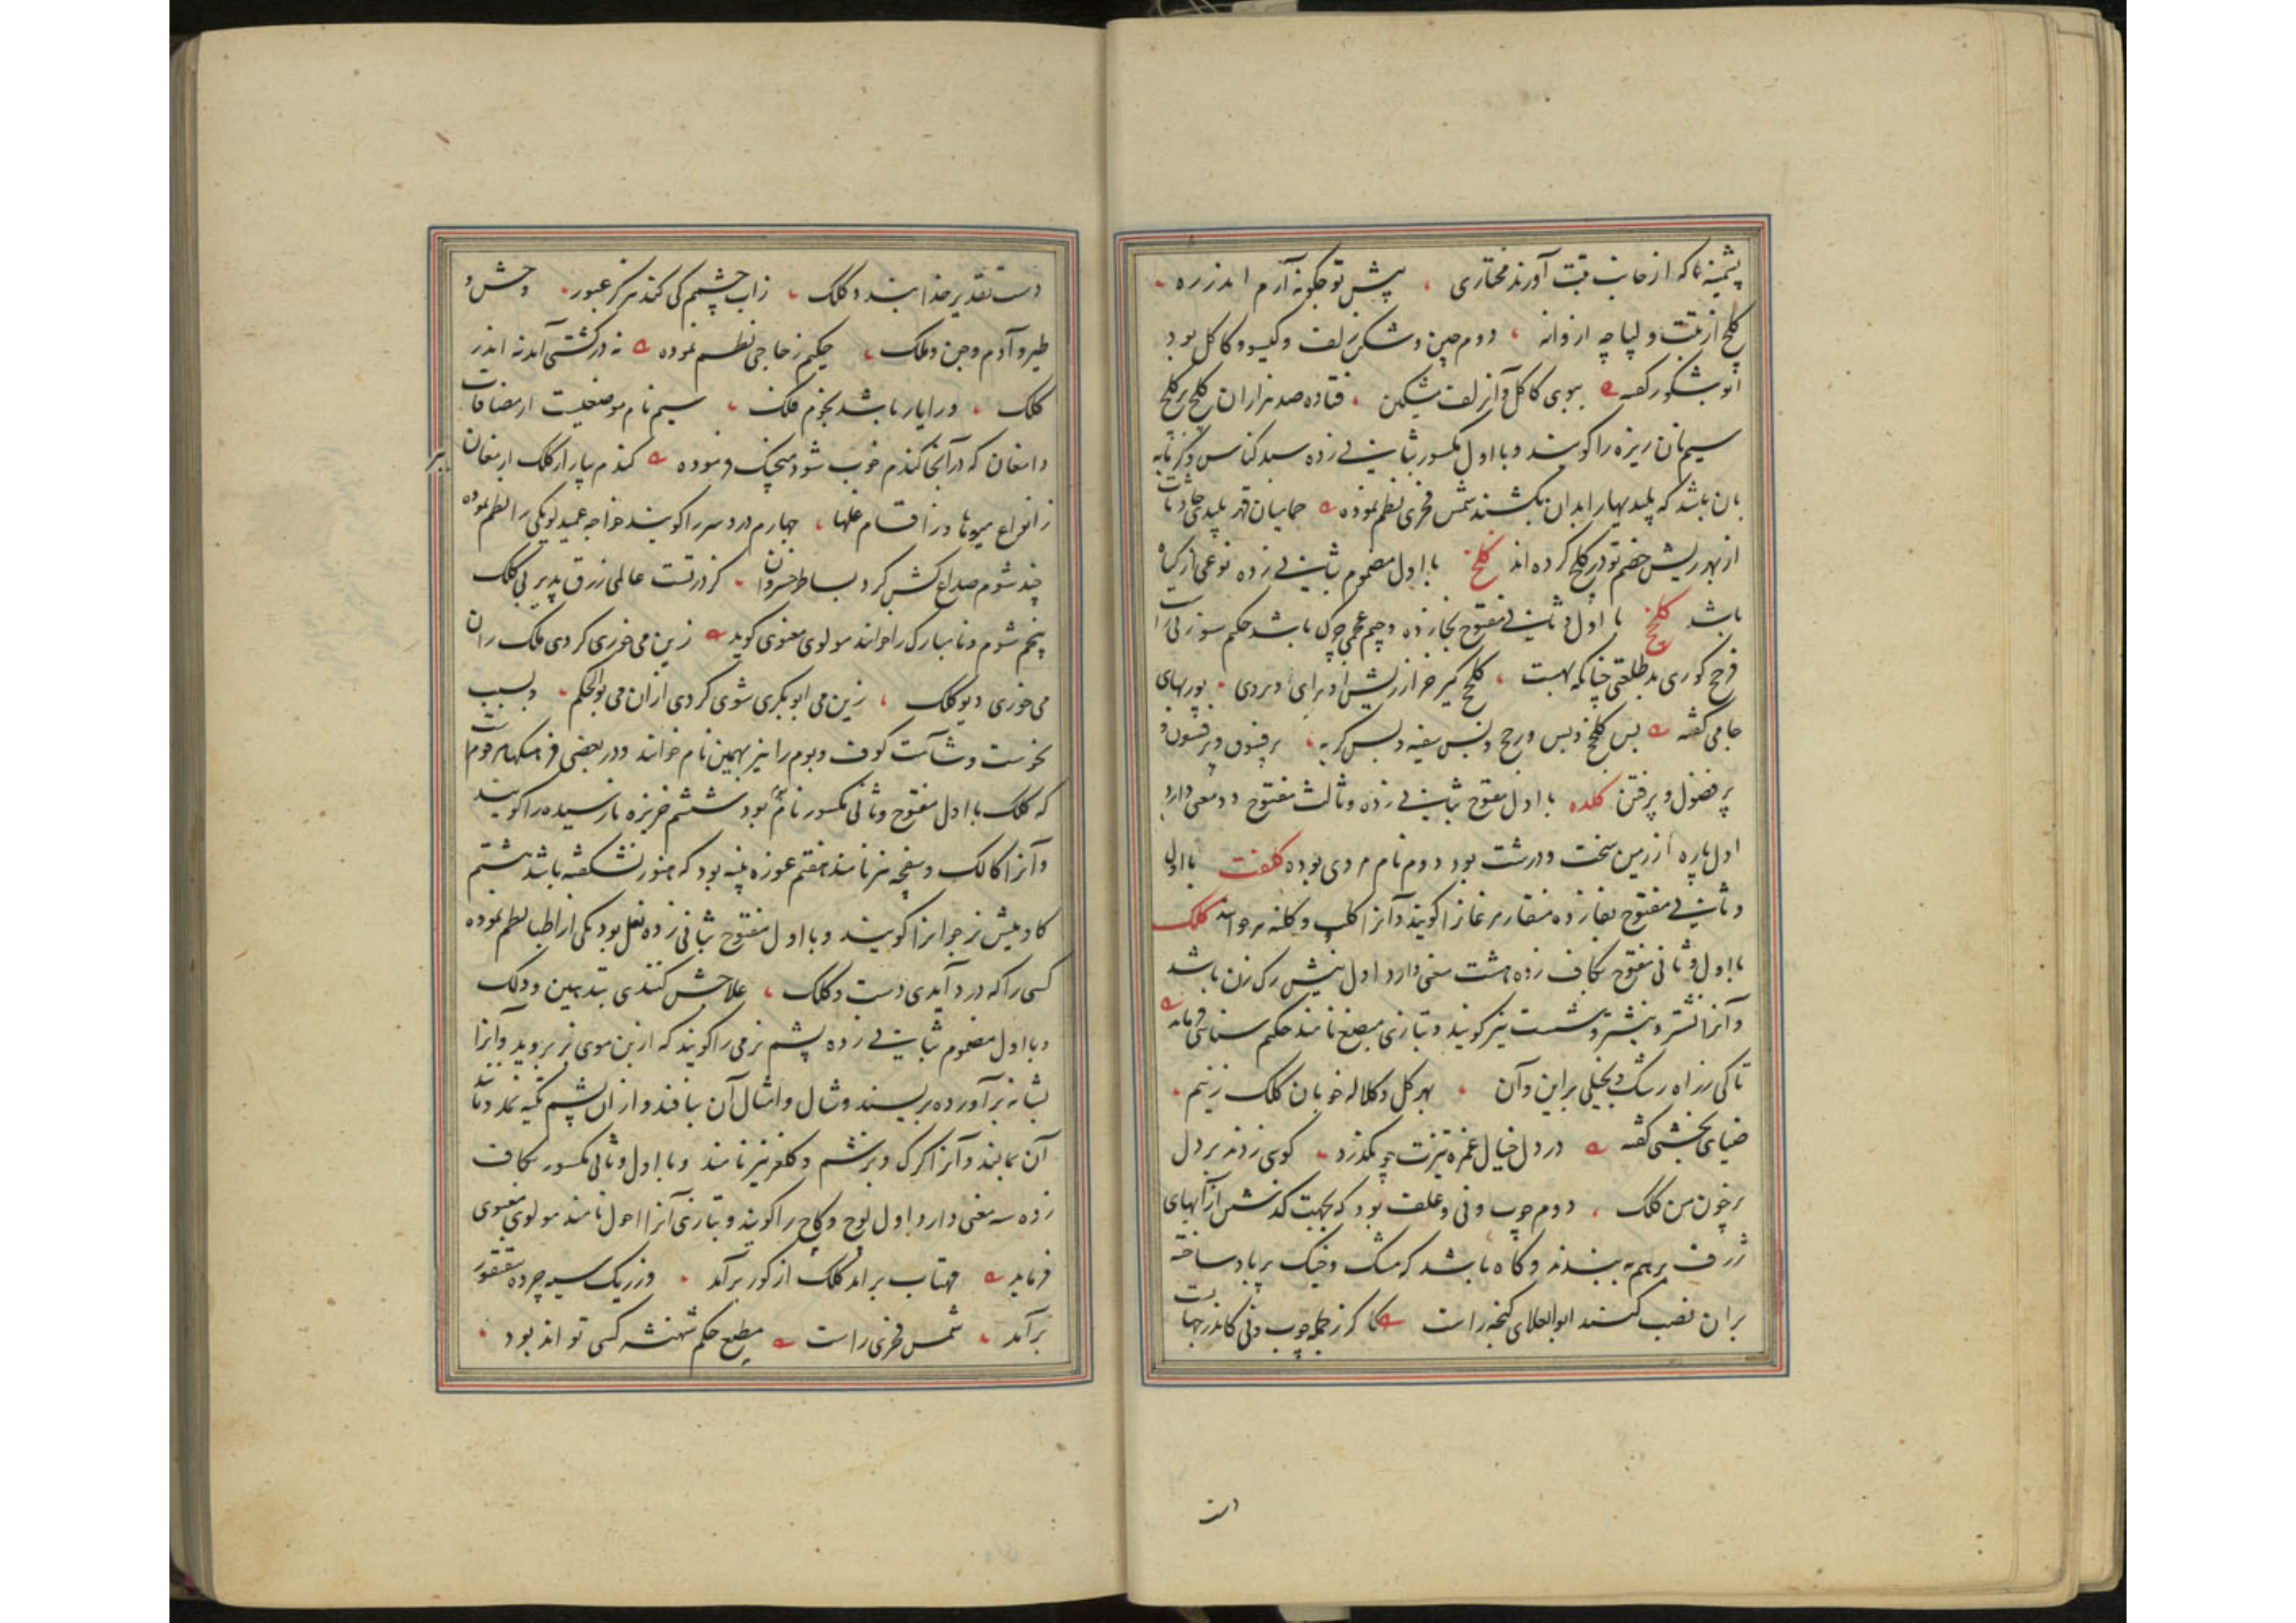 پشمینها که از جانب تبت آورند مختاری ، پیش تو چگونه آرم اندر ره
کلج از تبت و لپاچه از وانه ، دوم چین و شکن زلف و کیسو و کاکل بود
ابو شکور گفته ببوی کاکل و آن زلف مشکین ، فتاده صد هزاران کلج بر کلج
سیم نان ریزه را کویند و با اول مکسور بثانی زده سبد کناس و کرمابه
بان باشد که پلیدیها را بدان بکشند شمس فخری نظم نموده
از بهر ریش خصم تو در کلج کرده اند کلخ با اول مضموم بثانی زده نوعی از کیاه
باشد کلخج با اول و ثانی مفتوح بخا زده و جیم عجمی چرک باشد حکیم سوزنی راست
کلخج کیر خر از ریش او برای و بردی ، پوربهای
جامی گفته بس کلخج و بس
پر فضول و پر فتن کلده با اول مفتوح بثانی زده و ثالث مفتوح دو معنی دارد
اول پاره از زمین سخت و درشت بود دوم نام مردی بوده کلفت با اول
و ثانی مفتوح بفا زده منقار مرغان را کویند و آنرا کلب و کلنه نیز خوانند کلک
با اول و ثانی مفتوح بکاف زده هشت معنی دارد اول نیش رک زن باشد
و آنرا نشتر و نیشتر و شست نیز کویند و بتازی مبضع نامند حکیم سنائی فرماید
تا کی ز راه رشک و بخیلی بر این و آن ، بهر کل و کلاله خوبان کلک زنیم
ضیای بخشی گفته در دل خیال غمزه تیزت چو بگذرد ، کوئی زدند بر دل
پر خون من کلک ، دوم چوب و نی و علف بود که بجهت گذشتن از آبهای
ژرف بر هم ببندند و گاه باشد که مشک و خیک پر باد ساخته
بر ان نصب کنند ابو العلای گنجه راست گر ز جمله چوب و نی کاندر جهانست
دست
دست تقدیر خدا بندد کلک ، زاب چشمم کی کند هرگز عبور ، وحش و
طیر و آدم و جن و ملک ، حکیم زجاجی نظم نموده نه در کشتی آمد نه اندر
کلک ، ورا یار باشد نجوم فلک ، سیم نام موضعیست از مضافات
دامغان که در آنجا کندم خوب شود منجیک فرموده کندم بیار از کلک ارمغان
ز انواع میوها و ز اقسام غلها ، چهارم درد سر را کویند خواجه عمید لویکی راست نظم نموده
چند شوم صداع کش کرد بساط خسروان ، کز درتست عالمی رزق پذیر بی کلک
پنجم شوم و نامبارک را خوانند مولوی معنوی کوید زین می خوری کردی ملک ران
می خوری دیو کلک ، زین می ابو بکری شوی کردی ازان می بو الحکم ، و بسبب
نحوست و شآمت کوف و بوم را نیز بهمین نام خوانند و در بعضی فرهنکها مرقومست
که کلک با اول مفتوح و ثانی مکسور نام بوم بود ششم خربزه نارسیده را کویند
و آنرا کالک و سفچه نیز نامند هفتم غوزه پنبه بود که هنوز نشکفته باشد هشتم
کاو میش نر جوانرا کویند و با اول مفتوح بثانی زده بغل بود یکی از اطبا نظم نموده
کسی را که درد آیدی دست و کلک ، علاجش کنندی بتدهین و دلک
و با اول مضموم بثانی زده پشم نرمی را کویند که از بن موی بز بروید و آنرا
بشانه برآورده بریسند و شال و امثال آن ببافند و از ان پشم تکیه نمد و مانند
آن بمالند و آنرا کرک و بزشم و کلغر نیز نامند و با اول و ثانی مکسور بکاف
زده سه معنی دارد اول لوح و کاج را کویند و بتازی آنرا احول نامند مولوی معنوی
فرماید مهتاب برآمد کلک از کور برآمد ، وز ریک سیه چرده سقنقور
برآمد ، شمس فخری راست مطیع حکم شهنشه کسی تواند بود